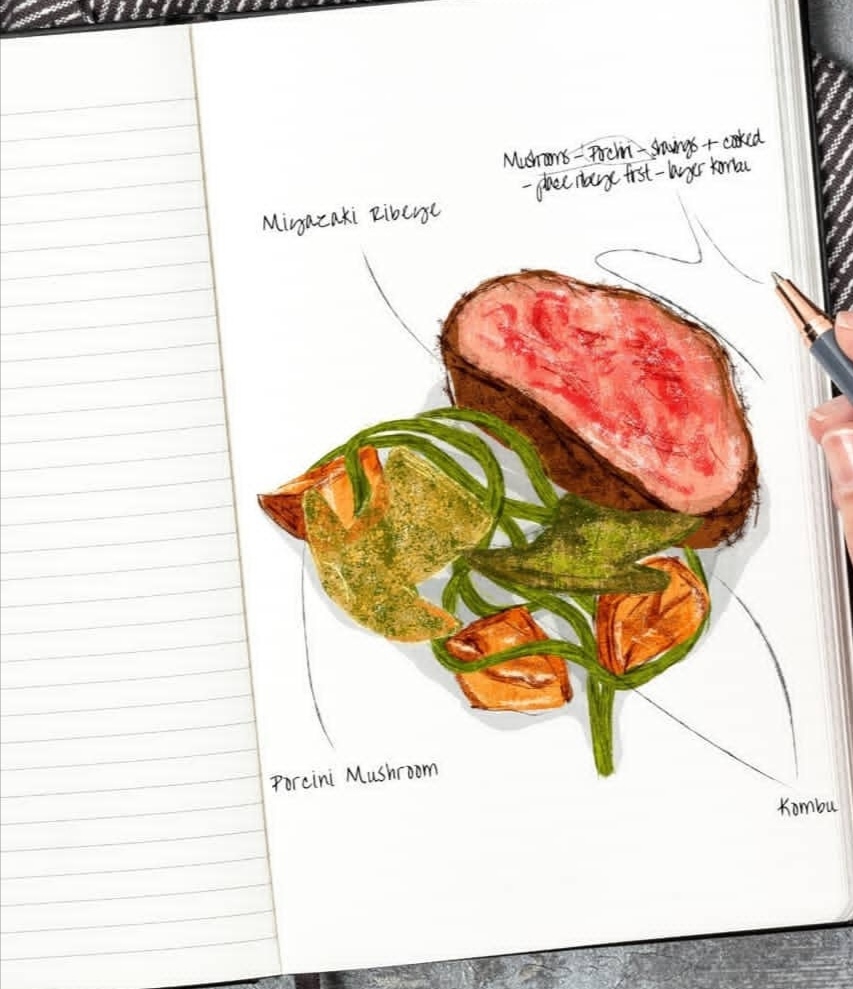 Mushrooms - Porcini - shavings + cooked
- place ribeye first - layer kombu
Miyazaki Ribeye
Porcini Mushroom
Kombu